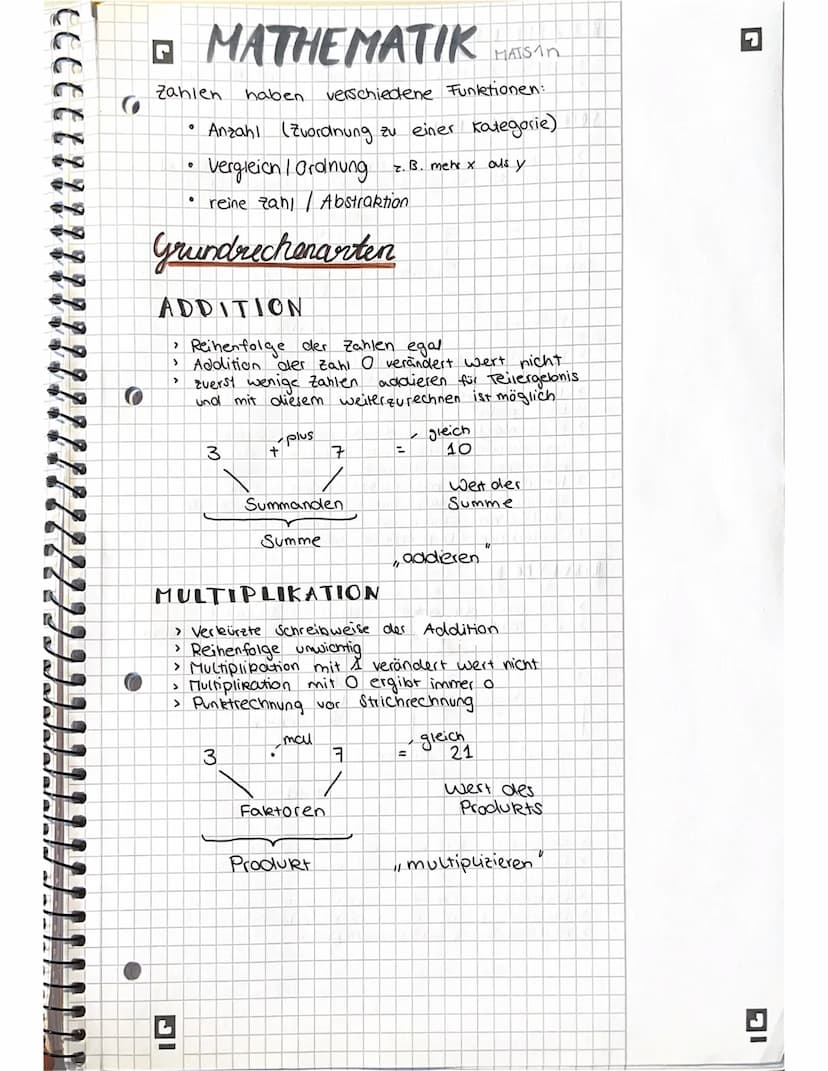 MATHEMATIK MATS1n
Zahlen haben verschiedene Funktionen:
• Anzahl (Zuordnung zu einer Kategorie)
• Vergleich / Ordnung z.B. mehr x als y
• reine Zahl / Abstraktion
Grundrechenarten
ADDITION
> Reihenfolge der Zahlen egal
> Addition der Zahl 0 verändert Wert nicht
> zuerst wenige Zahlen addieren für Teilergebnis
und mit diesem weiterzurechnen ist möglich
plus gleich
3 + 7 = 10
Summanden
Wert der
Summe
Summe
„addieren"
MULTIPLIKATION
> Verkürzte Schreibweise der Addition
> Reihenfolge unwichtig
> Multiplikation mit 1 verändert Wert nicht
> Multiplikation mit 0 ergibt immer 0
> Punktrechnung vor Strichrechnung
mal gleich
3 · 7 = 21
Faktoren
Wert des
Produkts
Produkt
„multiplizieren"